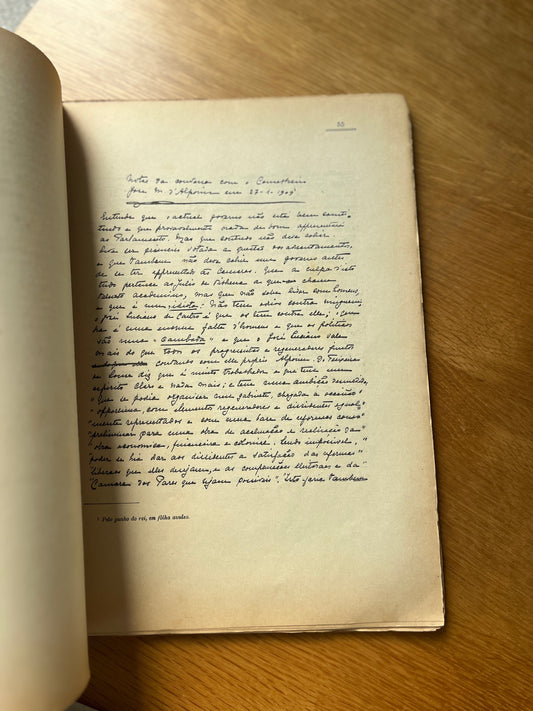 55
Notas da conversa com o Conselheiro
José M. d'Alpoim em 27-1-1909¹
Entende que o actual governo não está bem consti-
tuido e que provavelmente
ao Parlamento. Mas que contudo não deve cahir
sem ser primeiro votada a questão dos adeantamentos,
e que tambem não deve cahir um governo antes
de se ter appresentado ás Camaras. Que a culpa d'isto
tudo pertence ao Julio de Vilhena a quem chama
talento academico, mas que não sabe lidar com homens,
e que é um idiota. Não tem odios contra ninguem,
o José Luciano de Castro é que os tem contra elle; que
ha é uma enorme falta d'homens e que os politicos
são uma "cambada" e que o José Luciano vale
mais do que todos os progressistas e regeneradores juntos
contando com elle proprio Alpoim. Do Teixeira
de Sousa diz que é muito trabalhador e que tem um
espirito claro e nada mais; e tem uma ambição desmedida,
"Que se podia organizar um gabinete, chegada a occasião"
"opportuna, com elementos regeneradores e dissidentes egual-"
"mente representados e com uma base de reformas como"
"preliminar para uma obra de acalmação e realisação da"
"obra economica, financeira e colonial. Sendo impossivel,"
"poder-se-hia dar aos dissidentes a satisfação das reformas"
"liberaes que elles desejam, e as compensações eleitoraes e da"
"Camara dos Pares que sejam possiveis". Isto seria tambem
¹ Pelo punho do rei, em fôlha avulsa.